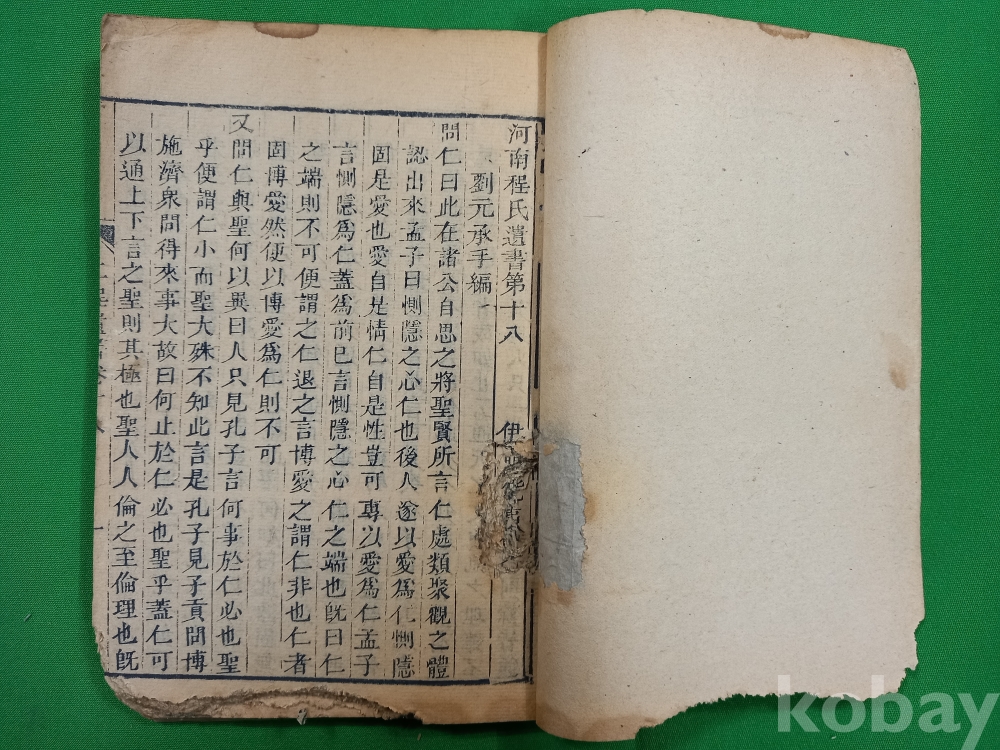 河南程氏遺書第十八
伊
劉元承手編
問仁曰此在諸公自思之將聖賢所言仁處類聚觀之體
認出來孟子曰惻隱之心仁也後人遂以愛為仁惻隱
固是愛也愛自是情仁自是性豈可專以愛爲仁孟子
言惻隱爲仁蓋爲前已言惻隱之心仁之端也旣曰仁
之端則不可便謂之仁退之言博愛之謂仁非也仁者
固博愛然便以博愛爲仁則不可
又問仁與聖何以異曰人只見孔子言何事於仁必也聖
乎便謂仁小而聖大殊不知此言是孔子見子貢問博
施濟衆問得來事大故曰何止於仁必也聖乎蓋仁可
以通上下言之聖則其極也聖人人倫之至倫理也旣
kobay